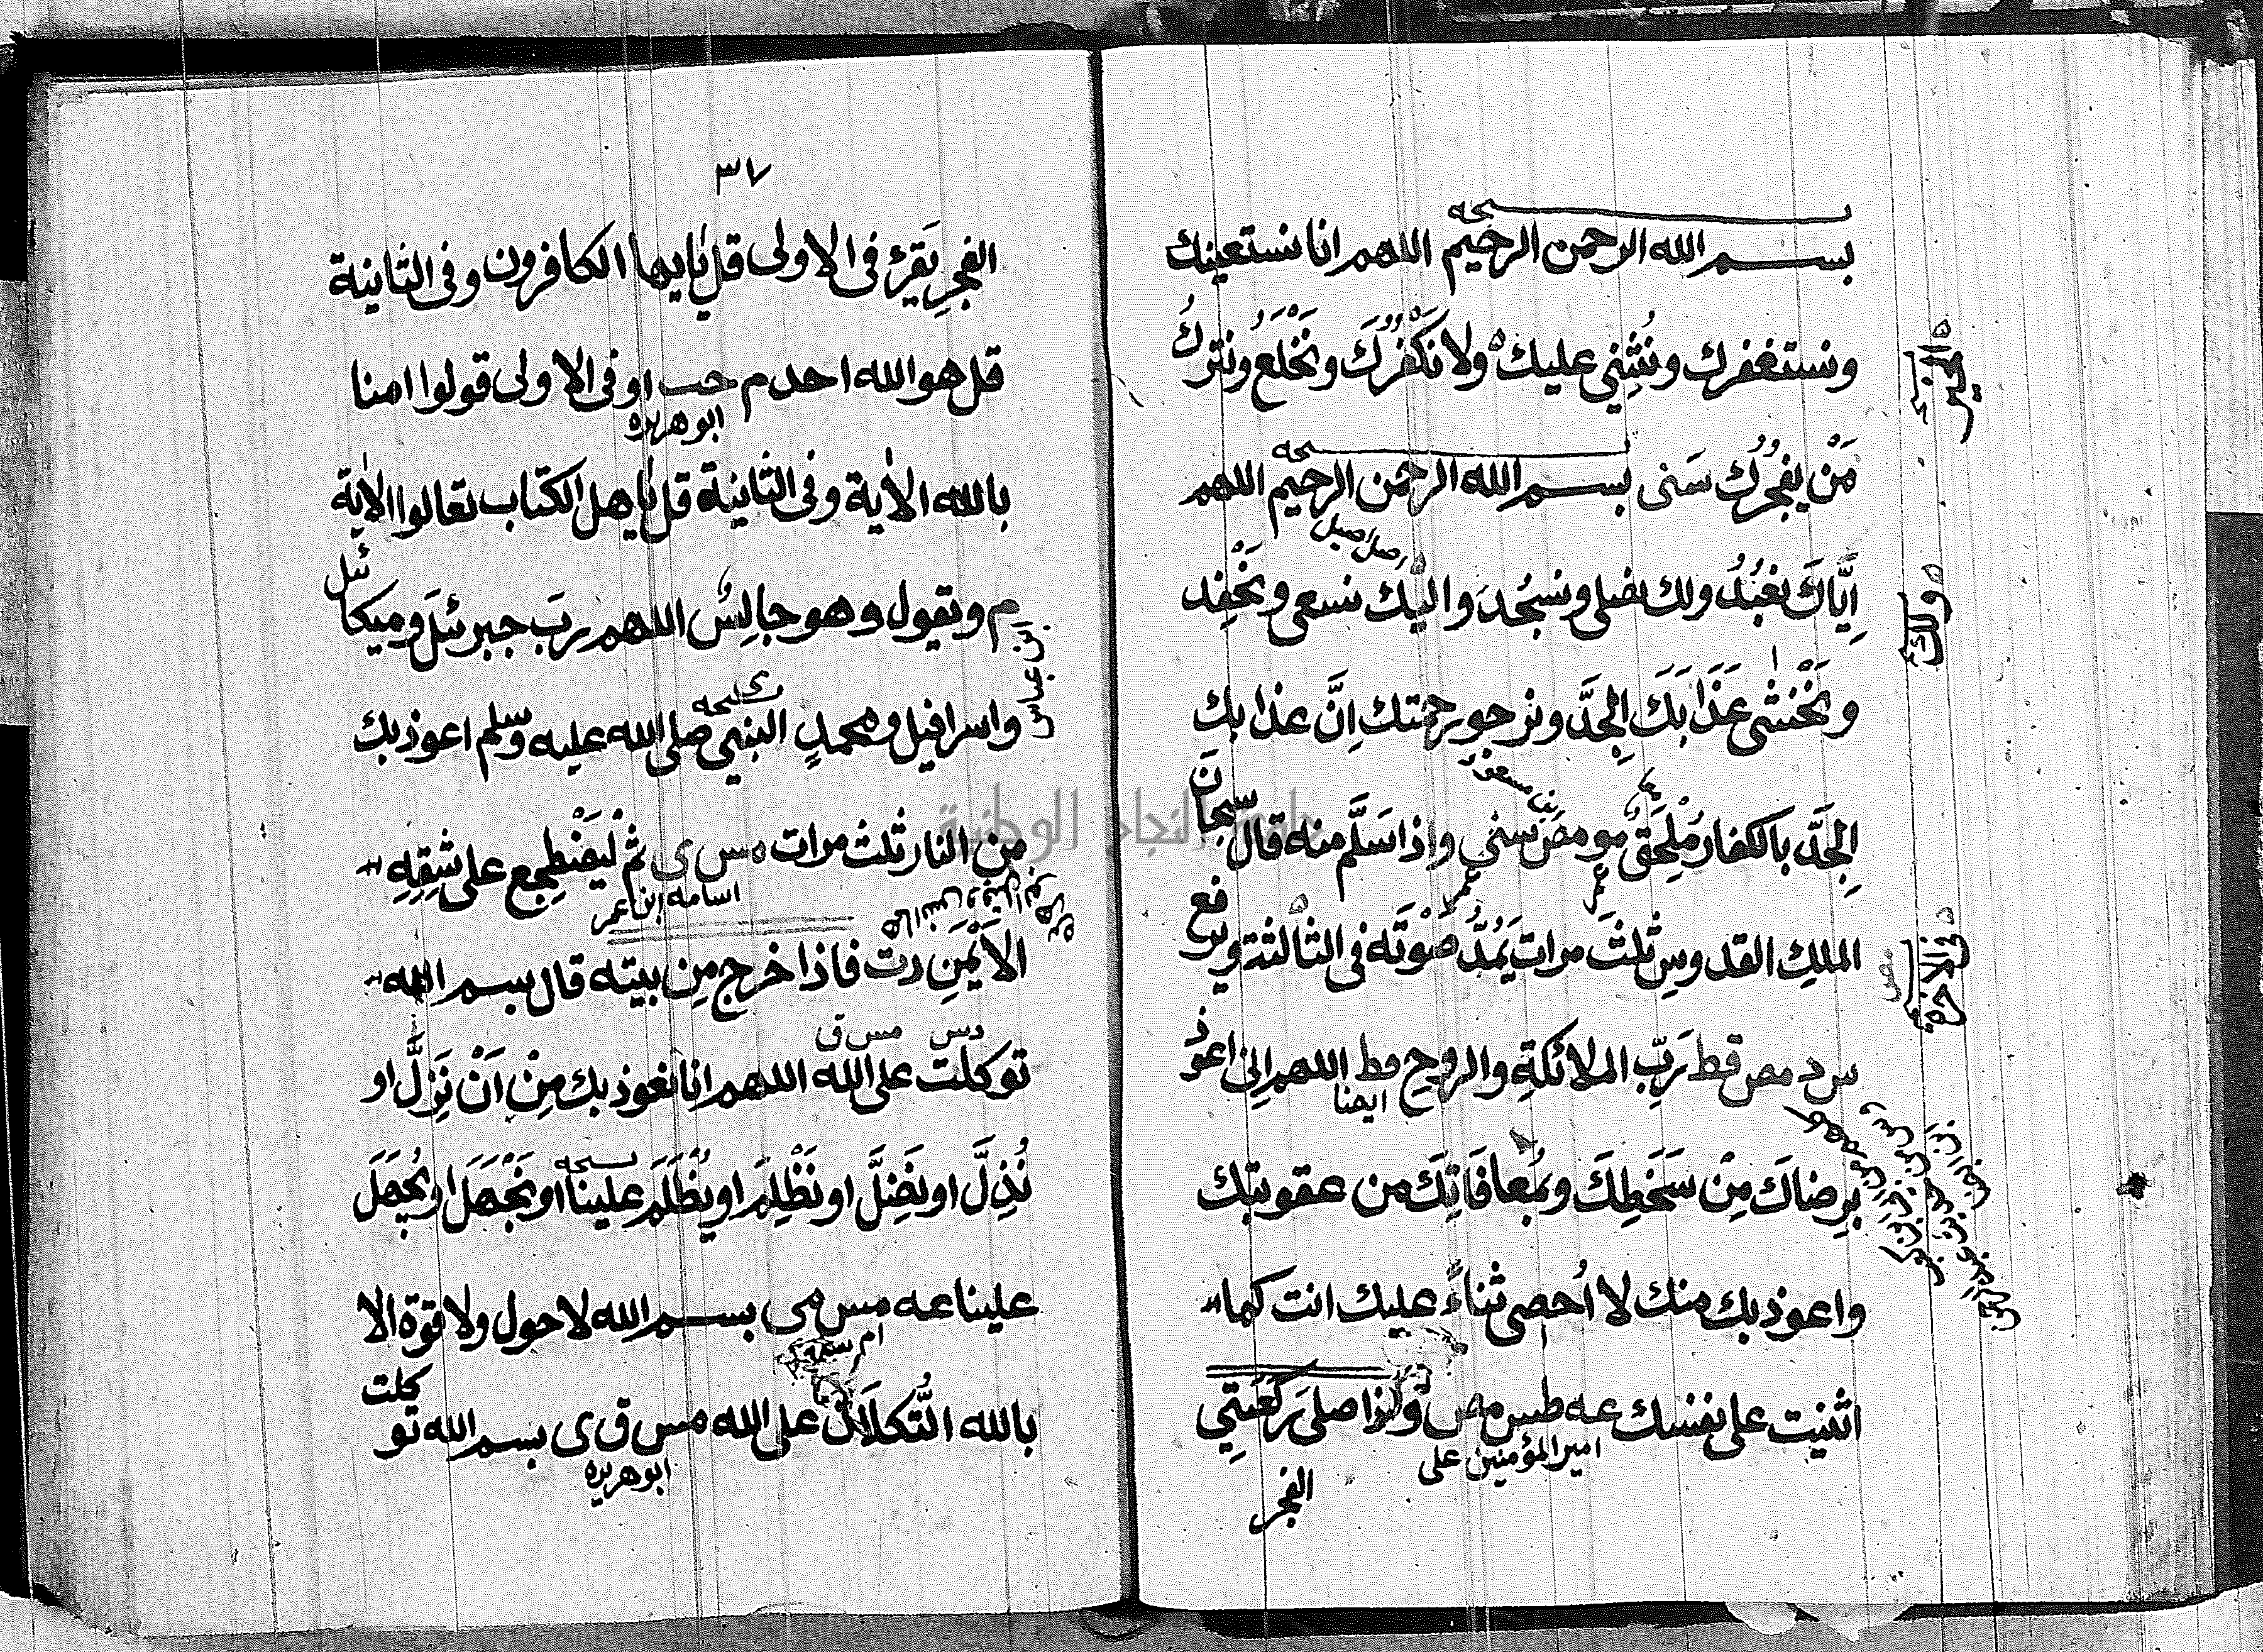 بسم الله الرحمن الرحيم اللهم انا نستعينك
ونستغفرك ونُثْنِي عليك ولا نَكْفُرُكَ ونَخْلَعُ ونتركُ
مَنْ يفجُرُك سَنى بسم الله الرحمن الرحيم اللهم
اِيَّاكَ نعْبُدُ ولك نصلى ونسجُدُ واليْك نسعى ونَحْفِد
ونَخْشٰى عَذَابَكَ الجِدَّ ونرجو رحمتك اِنَّ عذابك
الجِدَّ بالكفار مُلْحَقٌ مو مص سني واذا سَلَّم منه قال سبحان
ابن مسعود
عمر
الملِكِ القدوسِ ثلثَ مرات يَمُدُّ صَوْتَه فى الثالثة ويرفع
س د مص قط رَبِّ الملائكةِ والروحِ قط اللهم اِنى اعوُذ
ايضا
بِرِضاكَ مِنْ سَخَطِكَ وبمُعافَاتِكَ من عقوبتك
واعوذ بك منك لا اُحصى ثناءً عليك انت كما
اثنيت على نفسك عه طس مص واذا صلى رَكْعَتِي
امير المؤمنين على
الفجر
ولك
فى الآخرة
٣٧
الفجرِ يَقرَئ فى الاولى قل يٰايها الكافرون وفى الثانية
قل هو الله احد م حب او فى الاولى قولوا امنا
ابو هريره
بالله الاٰية وفى الثانية قل يٰاهل الكتاب تعالوا الاٰية
م ويقول وهو جالِسٌ اللهم ربَ جبرئلَ وميكائيل
ابن عباس
واسرافيل ومحمدٍ النبي صلى الله عليه وسلم اعوذ بك
من النار ثلث مرات مس ى ثم ليَضْطَجِع على شِقِهِ
اسامه ابن عمر
الاَيْمَنِ د ت فاذا خرج مِن بيته قال بسم الله
دس مس ق
توكلت على الله اللهم انا نعوذ بك مِنْ اَنْ نَزِلَّ او
نُذِلَّ او نَضِلَّ او نَظْلِمَ او يُظْلَمَ علينا او نَجْهَلَ او يُجْهَلَ
علينا عه مس ى بسم الله لا حول ولا قوة الا
ام سلمه
بالله التُّكلَانُ على الله مس ق ى بسم الله توكلت
ابو هريره
جامعة النجاح الوطنية